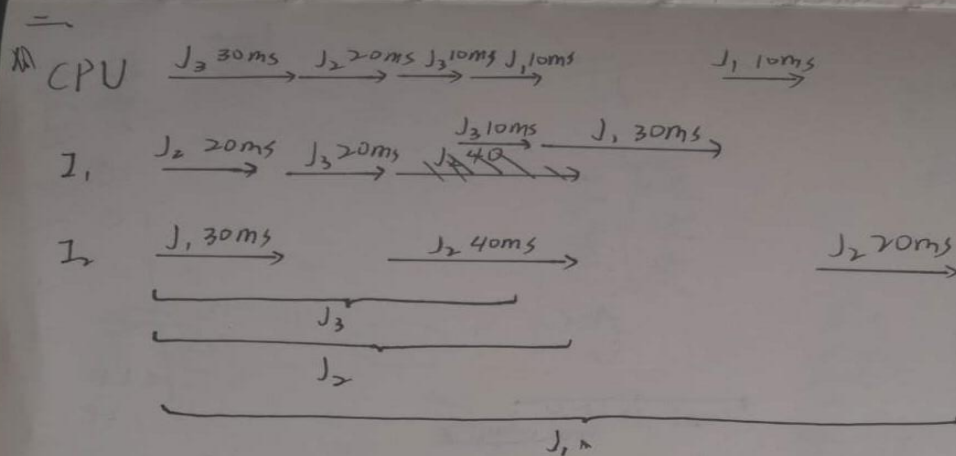 二、
CPU J₃ 30ms J₂ 20ms J₃ 10ms J₁ 10ms J₁ 10ms
J₃ 10ms J₁ 30ms
I₁ J₂ 20ms J₃ 20ms J₂ 40
I₂ J₁ 30ms J₂ 40ms J₂ 20ms
J₃
J₂
J₁